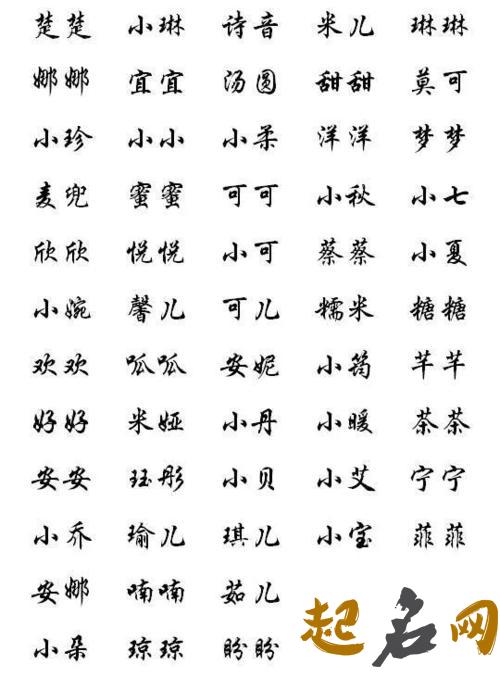 楚楚 小琳 诗音 米儿 琳琳
娜娜 宜宜 汤圆 甜甜 莫可
小珍 小小 小柔 洋洋 梦梦
麦兜 蜜蜜 可可 小秋 小七
欣欣 悦悦 小可 蔡蔡 小夏
小婉 馨儿 可儿 糯米 糖糖
欢欢 呱呱 安妮 小筠 芊芊
好好 米娅 小丹 小暖 茶茶
安安 珏彤 小贝 小艾 宁宁
小乔 瑜儿 琪儿 小宝 菲菲
安娜 喃喃 茹儿
小朵 琼琼 盼盼
起名网